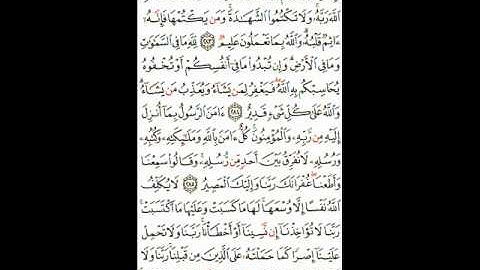 ٱللَّهَ رَبَّهُۥ وَلَا تَكْتُمُوا۟ ٱلشَّهَـٰدَةَ وَمَن يَكْتُمْهَا فَإِنَّهُۥٓ
ءَاثِمٌ قَلْبُهُۥ وَٱللَّهُ بِمَا تَعْمَلُونَ عَلِيمٌ ٢٨٣ لِّلَّهِ مَا فِى ٱلسَّمَـٰوَٰتِ
وَمَا فِى ٱلْأَرْضِ وَإِن تُبْدُوا۟ مَا فِىٓ أَنفُسِكُمْ أَوْ تُخْفُوهُ
يُحَاسِبْكُم بِهِ ٱللَّهُ فَيَغْفِرُ لِمَن يَشَآءُ وَيُعَذِّبُ مَن يَشَآءُ
وَٱللَّهُ عَلَىٰ كُلِّ شَىْءٍ قَدِيرٌ ٢٨٤ ءَامَنَ ٱلرَّسُولُ بِمَآ أُنزِلَ
إِلَيْهِ مِن رَّبِّهِۦ وَٱلْمُؤْمِنُونَ كُلٌّ ءَامَنَ بِٱللَّهِ وَمَلَـٰٓئِكَتِهِۦ وَكُتُبِهِۦ
وَرُسُلِهِۦ لَا نُفَرِّقُ بَيْنَ أَحَدٍ مِّن رُّسُلِهِۦ وَقَالُوا۟ سَمِعْنَا
وَأَطَعْنَا غُفْرَانَكَ رَبَّنَا وَإِلَيْكَ ٱلْمَصِيرُ ٢٨٥ لَا يُكَلِّفُ
ٱللَّهُ نَفْسًا إِلَّا وُسْعَهَا لَهَا مَا كَسَبَتْ وَعَلَيْهَا مَا ٱكْتَسَبَتْ
رَبَّنَا لَا تُؤَاخِذْنَآ إِن نَّسِينَآ أَوْ أَخْطَأْنَا رَبَّنَا وَلَا تَحْمِلْ
عَلَيْنَآ إِصْرًا كَمَا حَمَلْتَهُۥ عَلَى ٱلَّذِينَ مِن قَبْلِنَا رَبَّنَا وَلَا